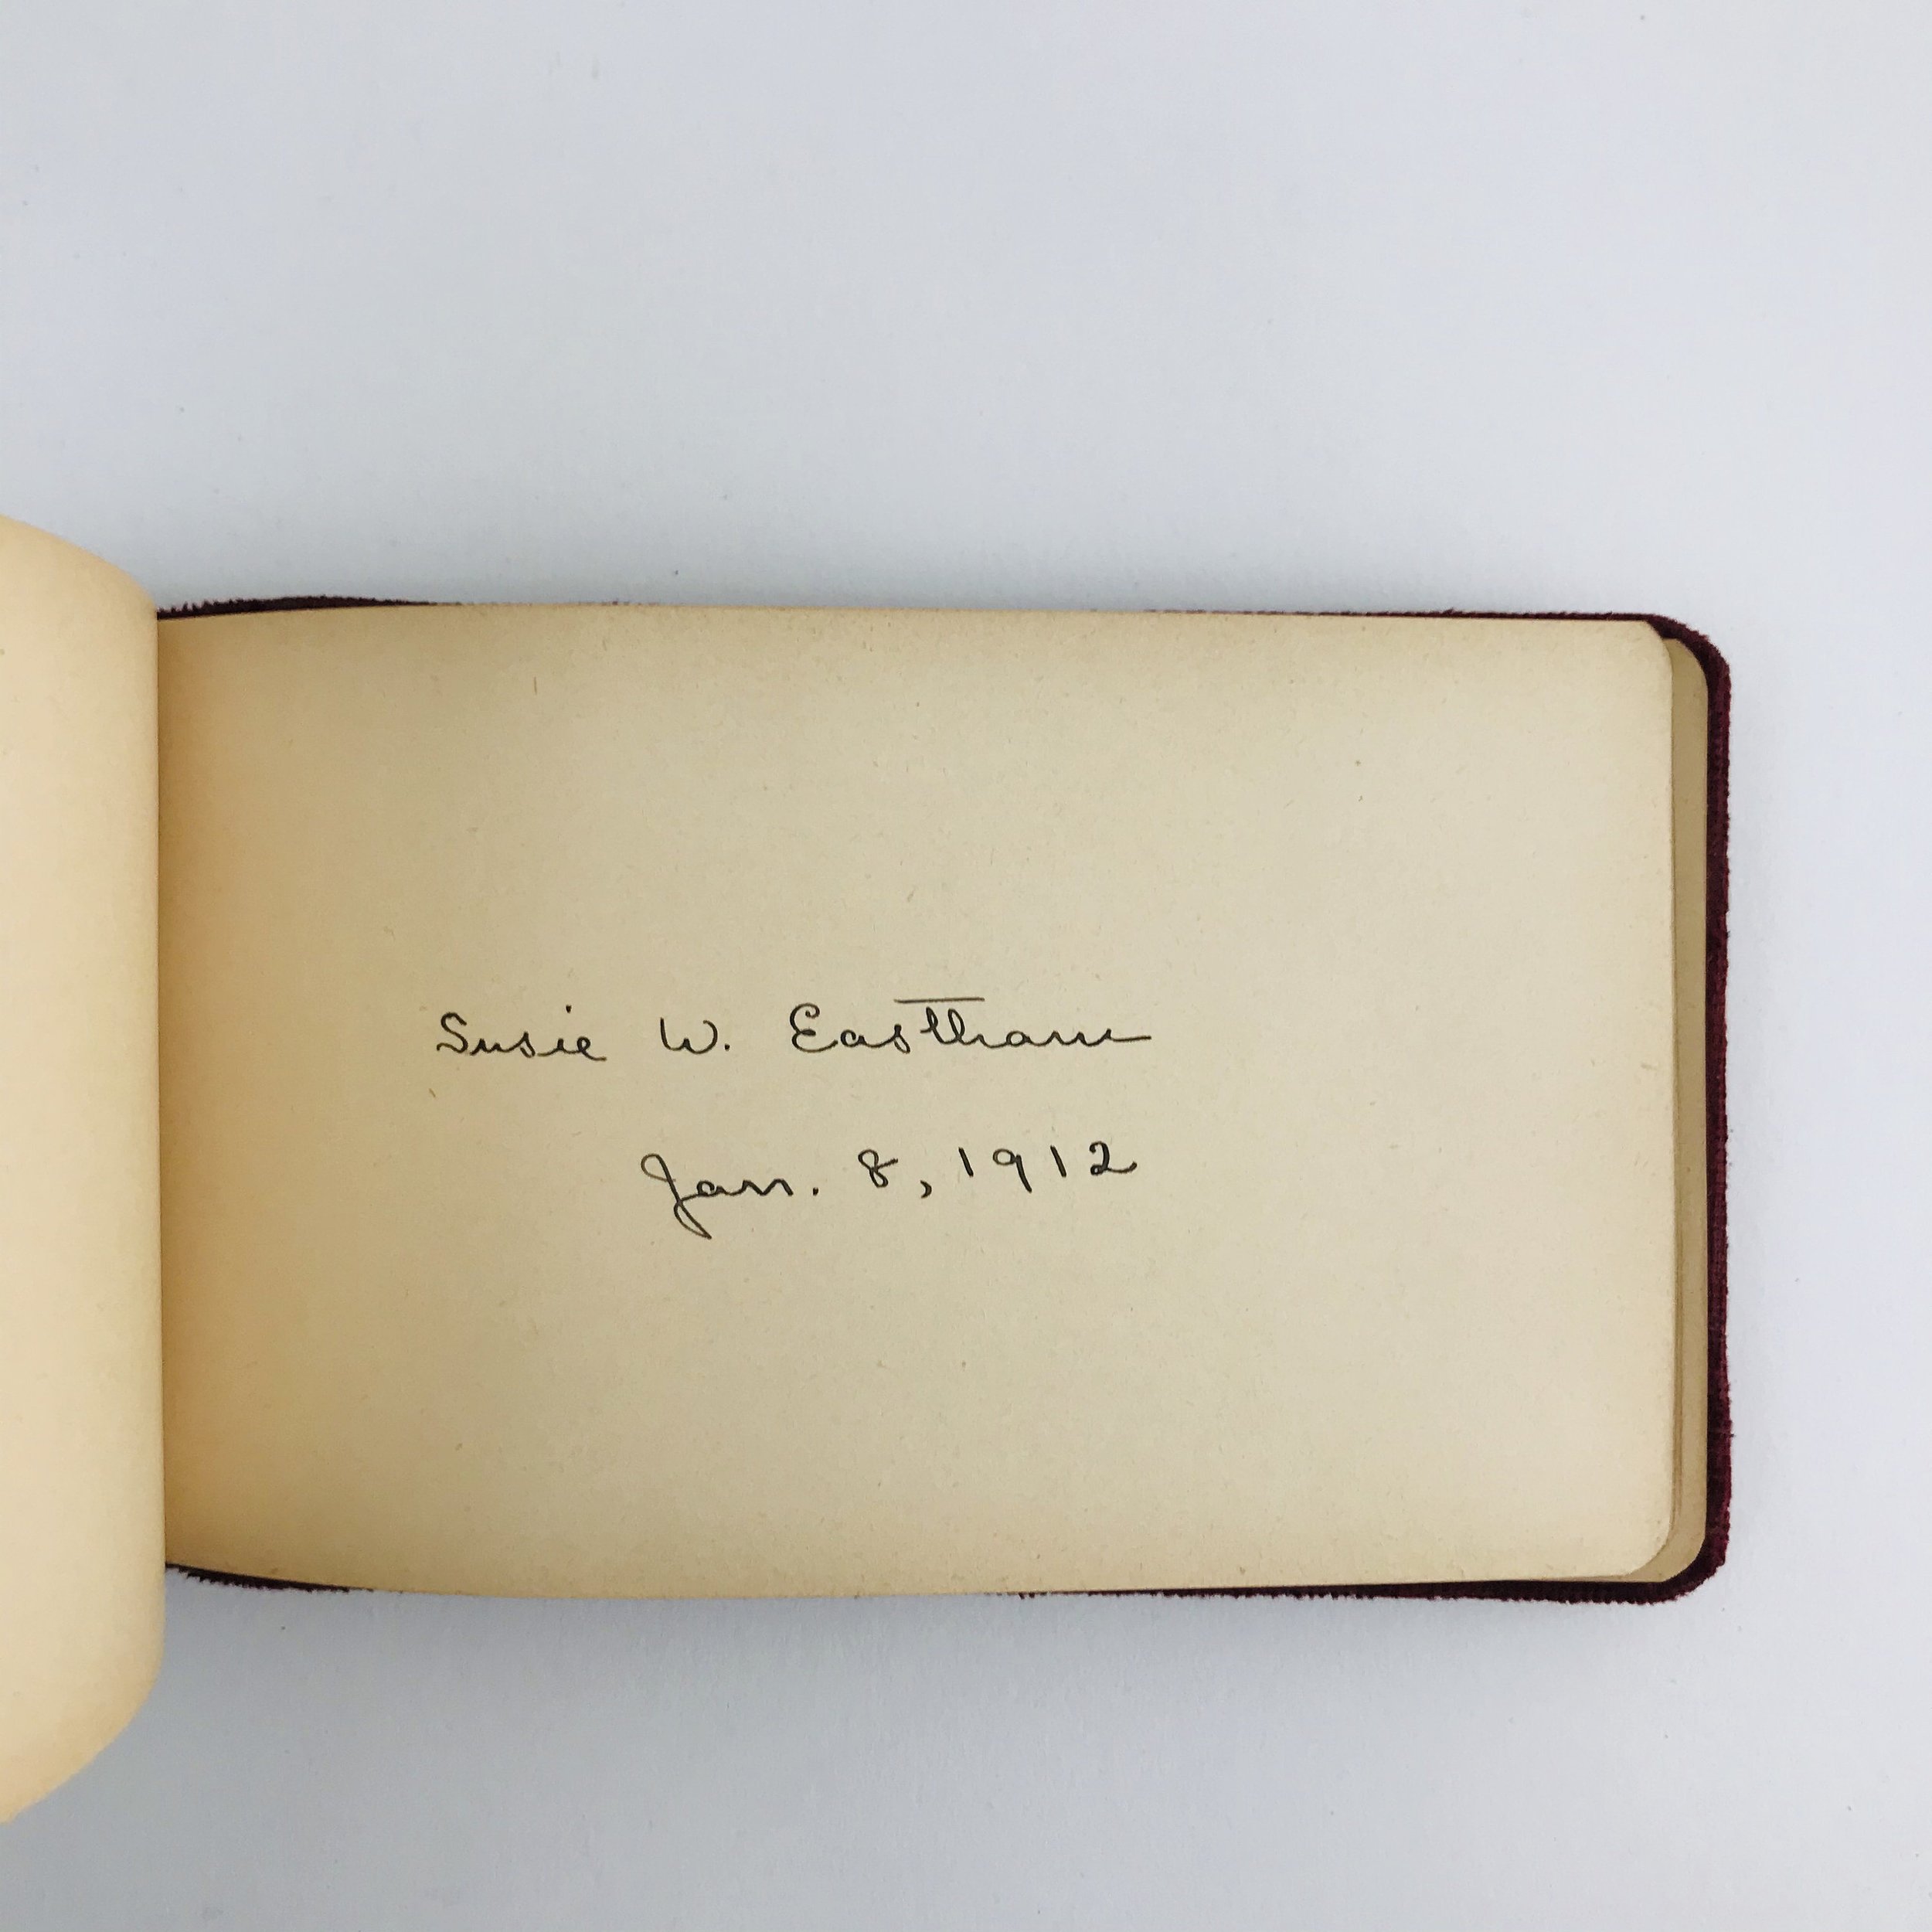 Susie W. Eastham
Jan. 8, 1912